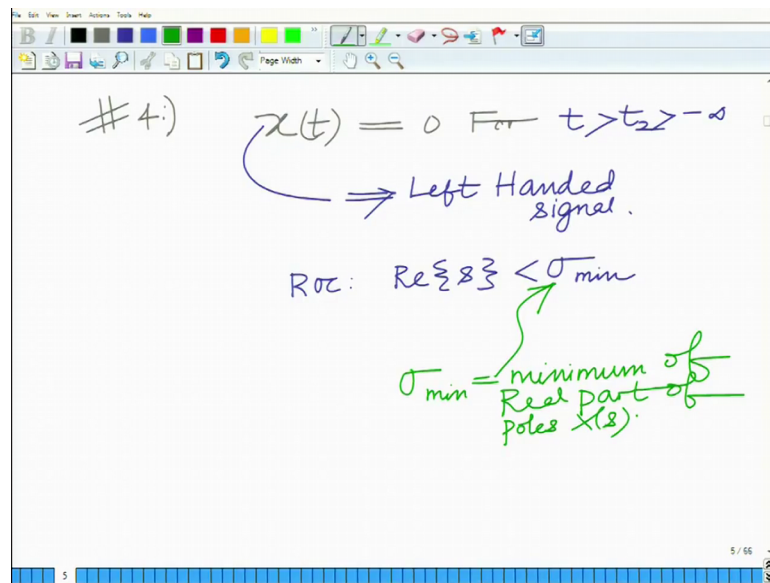 File Edit View Insert Actions Tools Help
B I
Page Width
#4:) x(t) = 0 For t > t₂ > -∞
⇒ Left Handed
signal.
ROC: Re{s} < σ min
σ min = minimum of
Real part of
poles X(s).
5 / 66
5